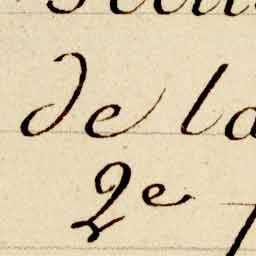 de la
2e